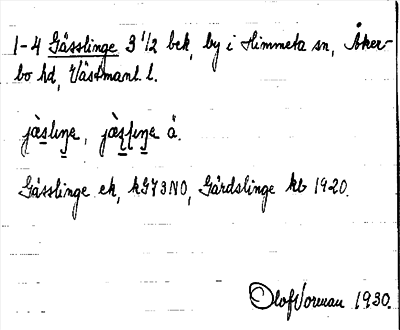 1-4 Gässlinge 3 1/2 bek, by i Himmeta sn, Åker-
bo hd, Västmanl. l.
ä.
Gässlinge ek, kG73NO, Gärdslinge kb 1920.
Olof Vorman 1930.